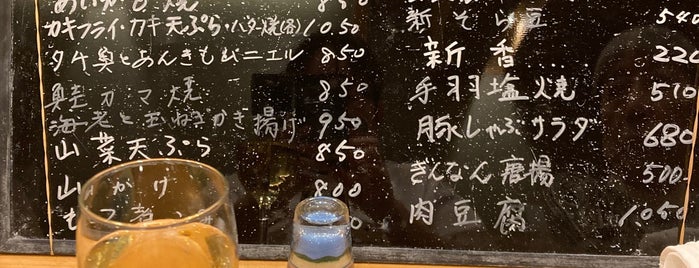 焼 850
カキフライ・カキ天ぷら・バター焼(各) 1.050
タチ奥とあんきもムニエル 850
鮭カマ焼 850
海老と玉ねぎかき揚げ 950
山菜天ぷら 850
山かけ 800
新そら豆 540
新香 … 220
手羽塩焼 510
豚しゃぶサラダ 680
ぎんなん唐揚 500
肉豆腐 1.050